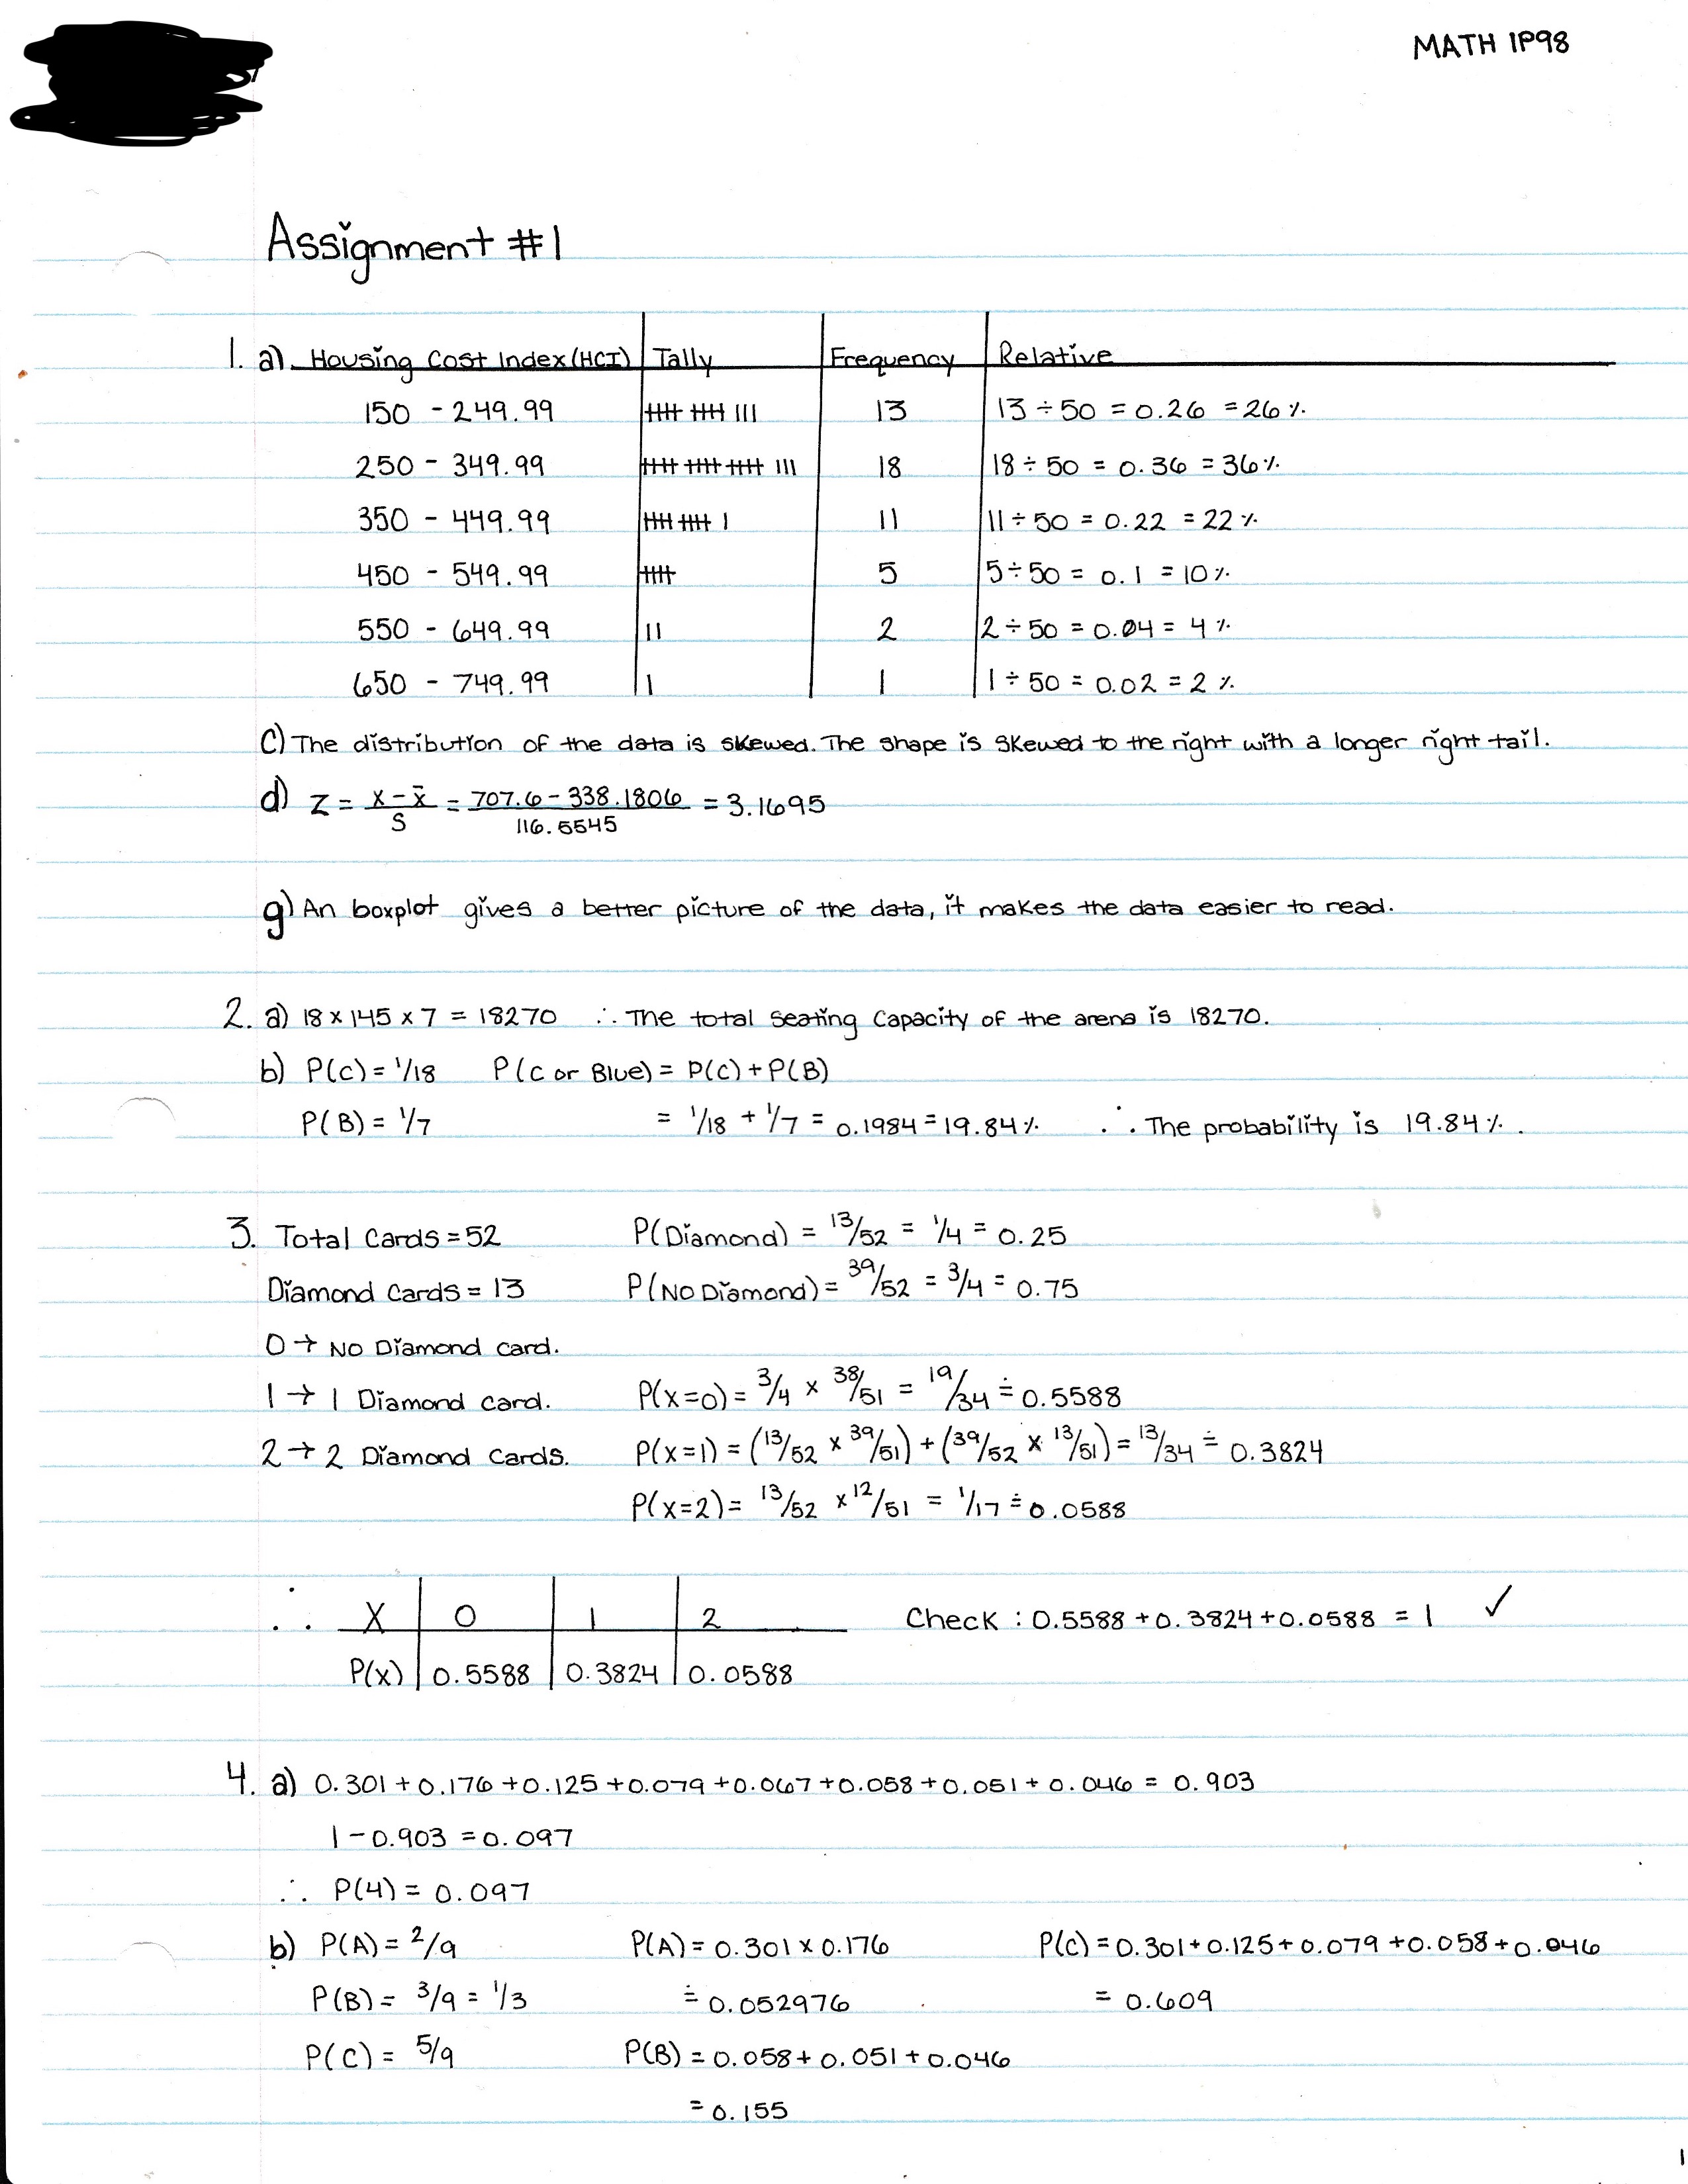 MATH 1P98
Assignment #1
1. a) Housing Cost Index (HCI) Tally Frequency Relative
150 - 249.99 13 13 ÷ 50 = 0.26 = 26%
250 - 349.99 18 18 ÷ 50 = 0.36 = 36%
350 - 449.99 11 11 ÷ 50 = 0.22 = 22%
450 - 549.99 5 5 ÷ 50 = 0.1 = 10%
550 - 649.99 2 2 ÷ 50 = 0.04 = 4%
650 - 749.99 1 1 ÷ 50 = 0.02 = 2%
c) The distribution of the data is skewed. The shape is skewed to the right with a longer right tail.
d) z = x - x̄ / s = 707.6 - 338.1806 / 116.5545 = 3.1695
g) An boxplot gives a better picture of the data, it makes the data easier to read.
2. a) 18 × 145 × 7 = 18270 ∴ The total seating capacity of the arena is 18270.
b) P(C) = 1/18 P(C or Blue) = P(C) + P(B)
P(B) = 1/7 = 1/18 + 1/7 = 0.1984 = 19.84% ∴ The probability is 19.84%.
3. Total Cards = 52 P(Diamond) = 13/52 = 1/4 = 0.25
Diamond Cards = 13 P(No Diamond) = 39/52 = 3/4 = 0.75
0 → No Diamond card.
1 → 1 Diamond card. P(x=0) = 3/4 × 38/51 = 19/34 ≐ 0.5588
2 → 2 Diamond cards. P(x=1) = (13/52 × 39/51) + (39/52 × 13/51) = 13/34 ≐ 0.3824
P(x=2) = 13/52 × 12/51 = 1/17 ≐ 0.0588
∴ X 0 1 2 Check : 0.5588 + 0.3824 + 0.0588 = 1 ✓
P(x) 0.5588 0.3824 0.0588
4. a) 0.301 + 0.176 + 0.125 + 0.079 + 0.067 + 0.058 + 0.051 + 0.046 = 0.903
1 - 0.903 = 0.097
∴ P(4) = 0.097
b) P(A) = 2/9 P(A) = 0.301 × 0.176 P(C) = 0.301 + 0.125 + 0.079 + 0.058 + 0.046
P(B) = 3/9 = 1/3 ≐ 0.052976 = 0.609
P(C) = 5/9 P(B) = 0.058 + 0.051 + 0.046
= 0.155
1